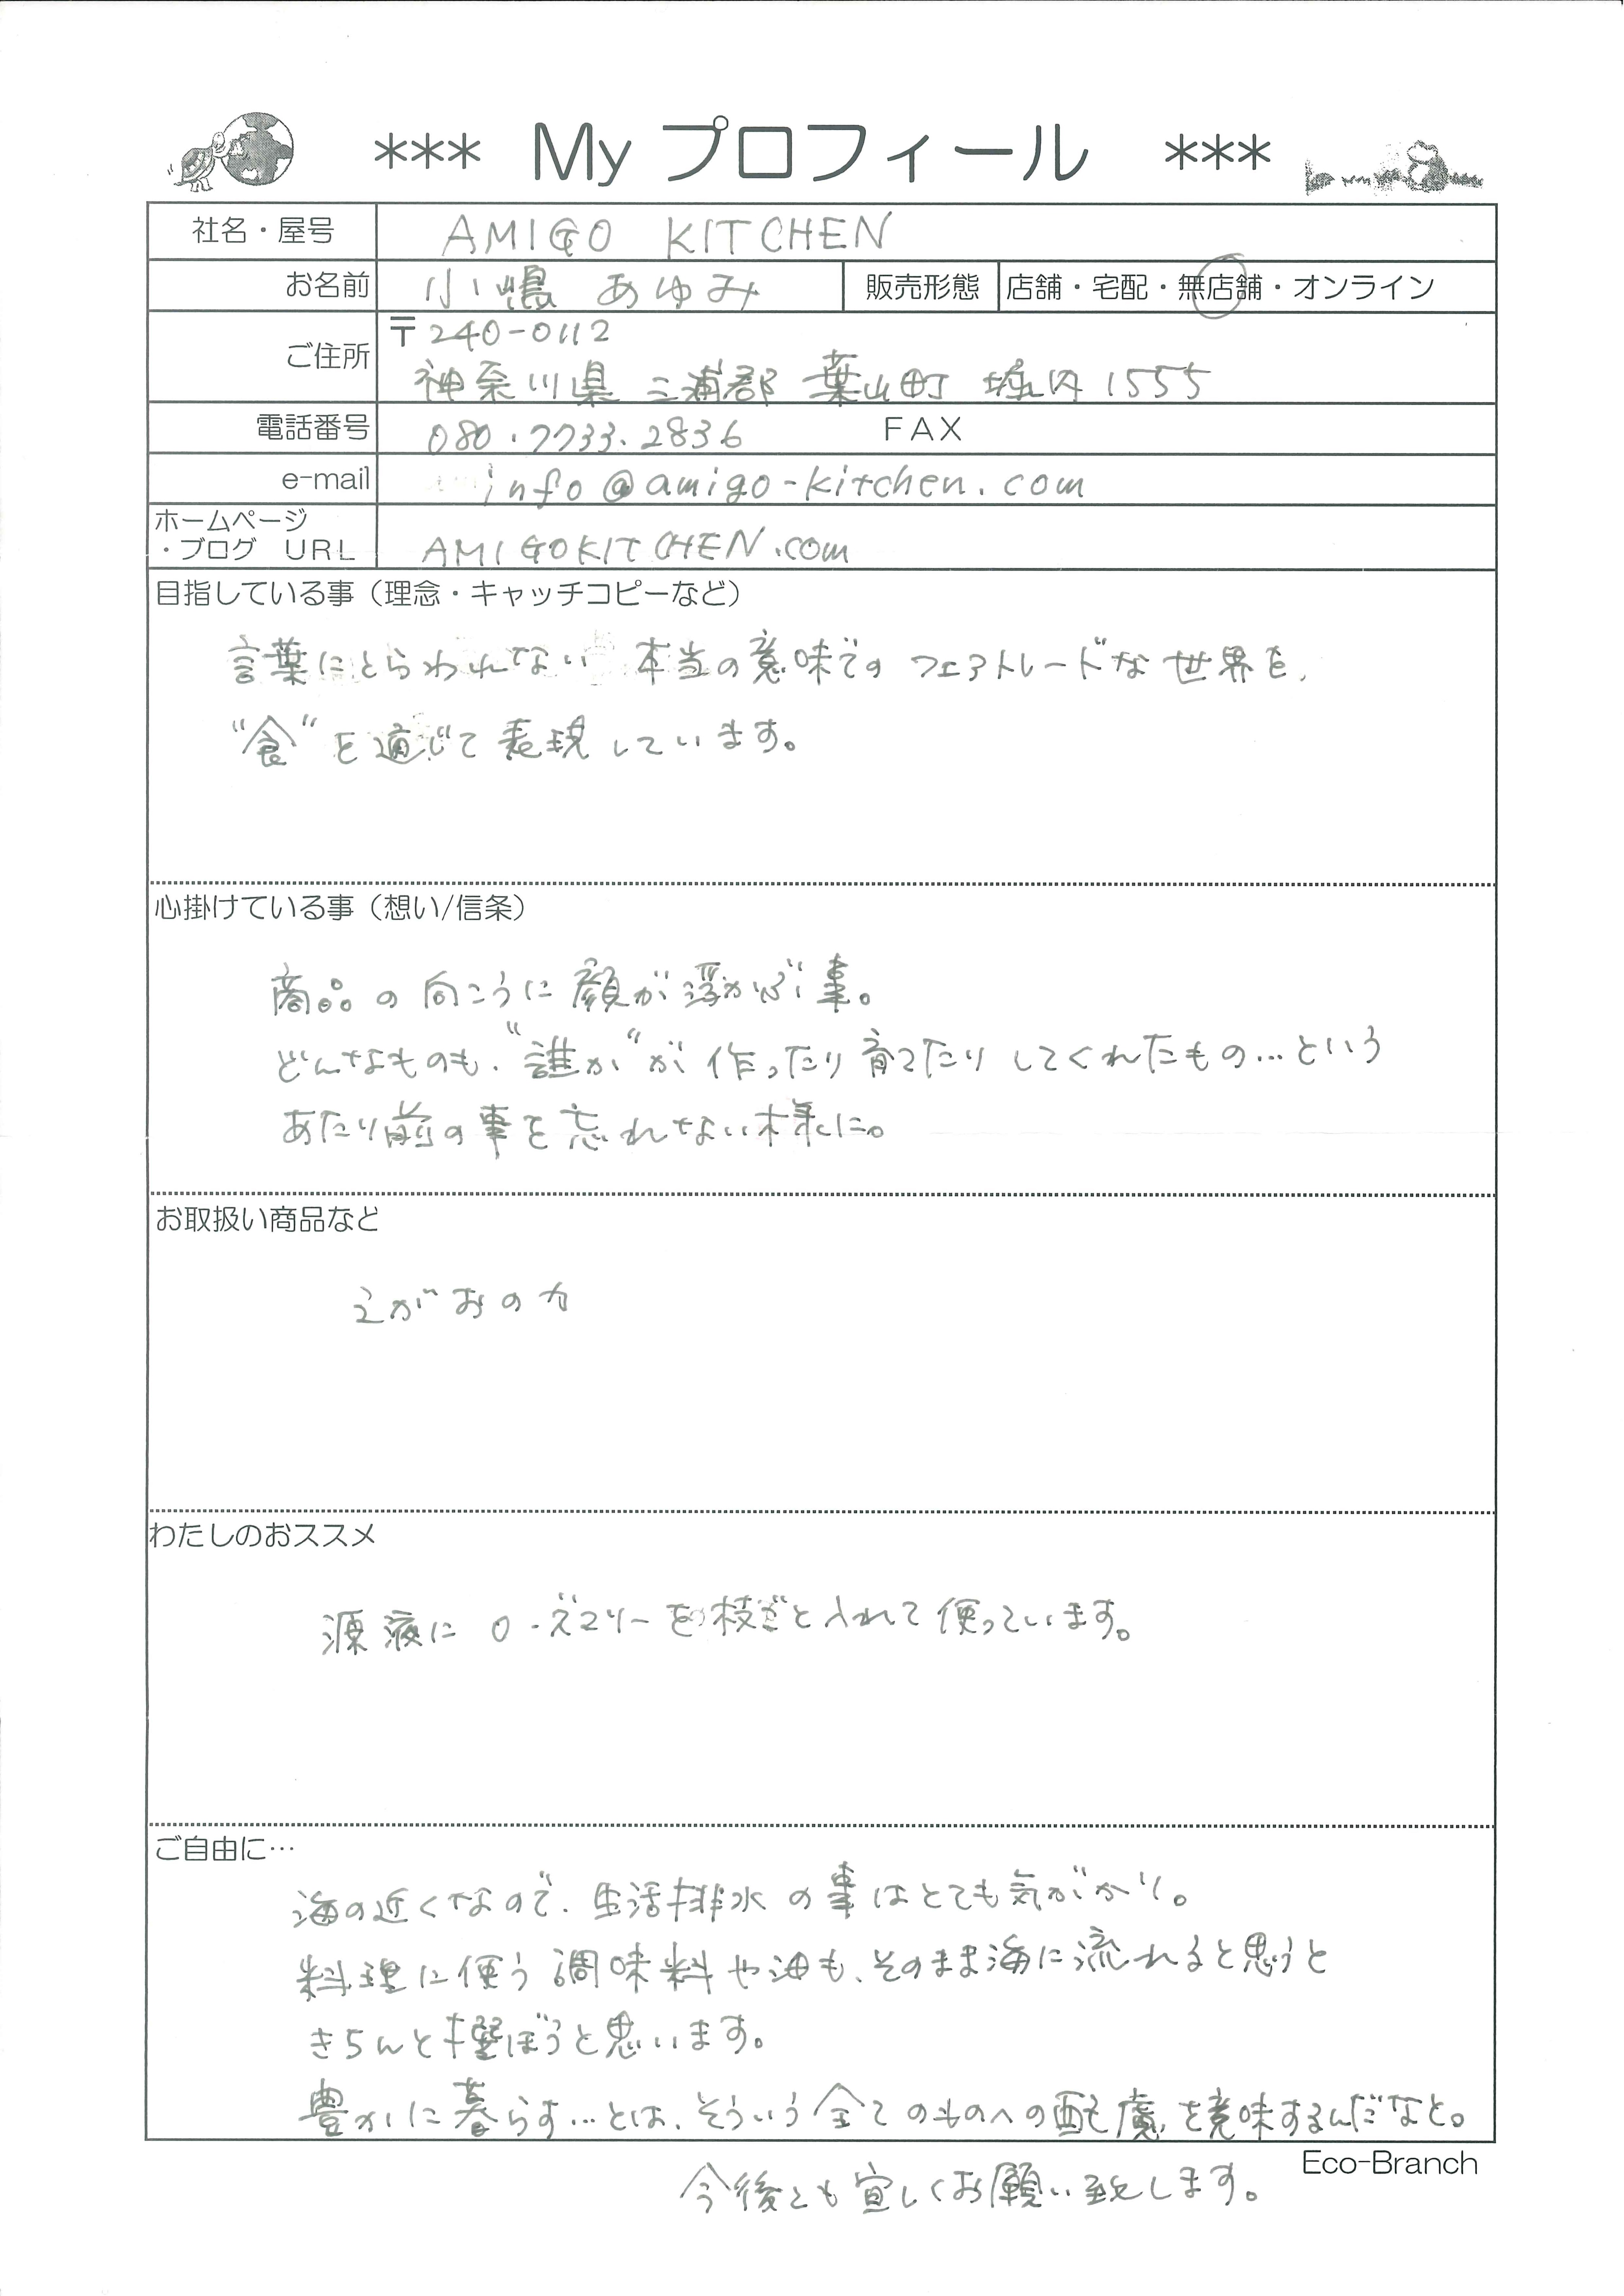 *** My プロフィール ***
社名・屋号 AMIGO KITCHEN
お名前 小嶋 あゆみ 販売形態 店舗・宅配・無店舗・オンライン
〒240-0112
ご住所 神奈川県 三浦郡 葉山町 堀内 1555
電話番号 080.7733.2836 FAX
e-mail info@amigo-kitchen.com
ホームページ
・ブログ URL AMIGOKITCHEN.com
目指している事（理念・キャッチコピーなど）
言葉にとらわれない 本当の意味でのフェアトレードな世界を、
“食”を通じて表現しています。
心掛けている事（想い/信条）
商品の向こうに顔が浮かぶ事。
どんなものも、“誰か”が作ったり育てたりしてくれたもの…という
あたり前の事を忘れない様に。
お取扱い商品など
えがおの力
わたしのおススメ
源液にローズマリーを枝ごと入れて使っています。
ご自由に…
海の近くなので、生活排水の事はとても気がかり。
料理に使う調味料や油も、そのまま海に流れると思うと
きちんと択ぼうと思います。
豊かに暮らす…とは、そういう全てのものへの配慮を意味するんだなと。
Eco-Branch
今後とも宜しくお願い致します。